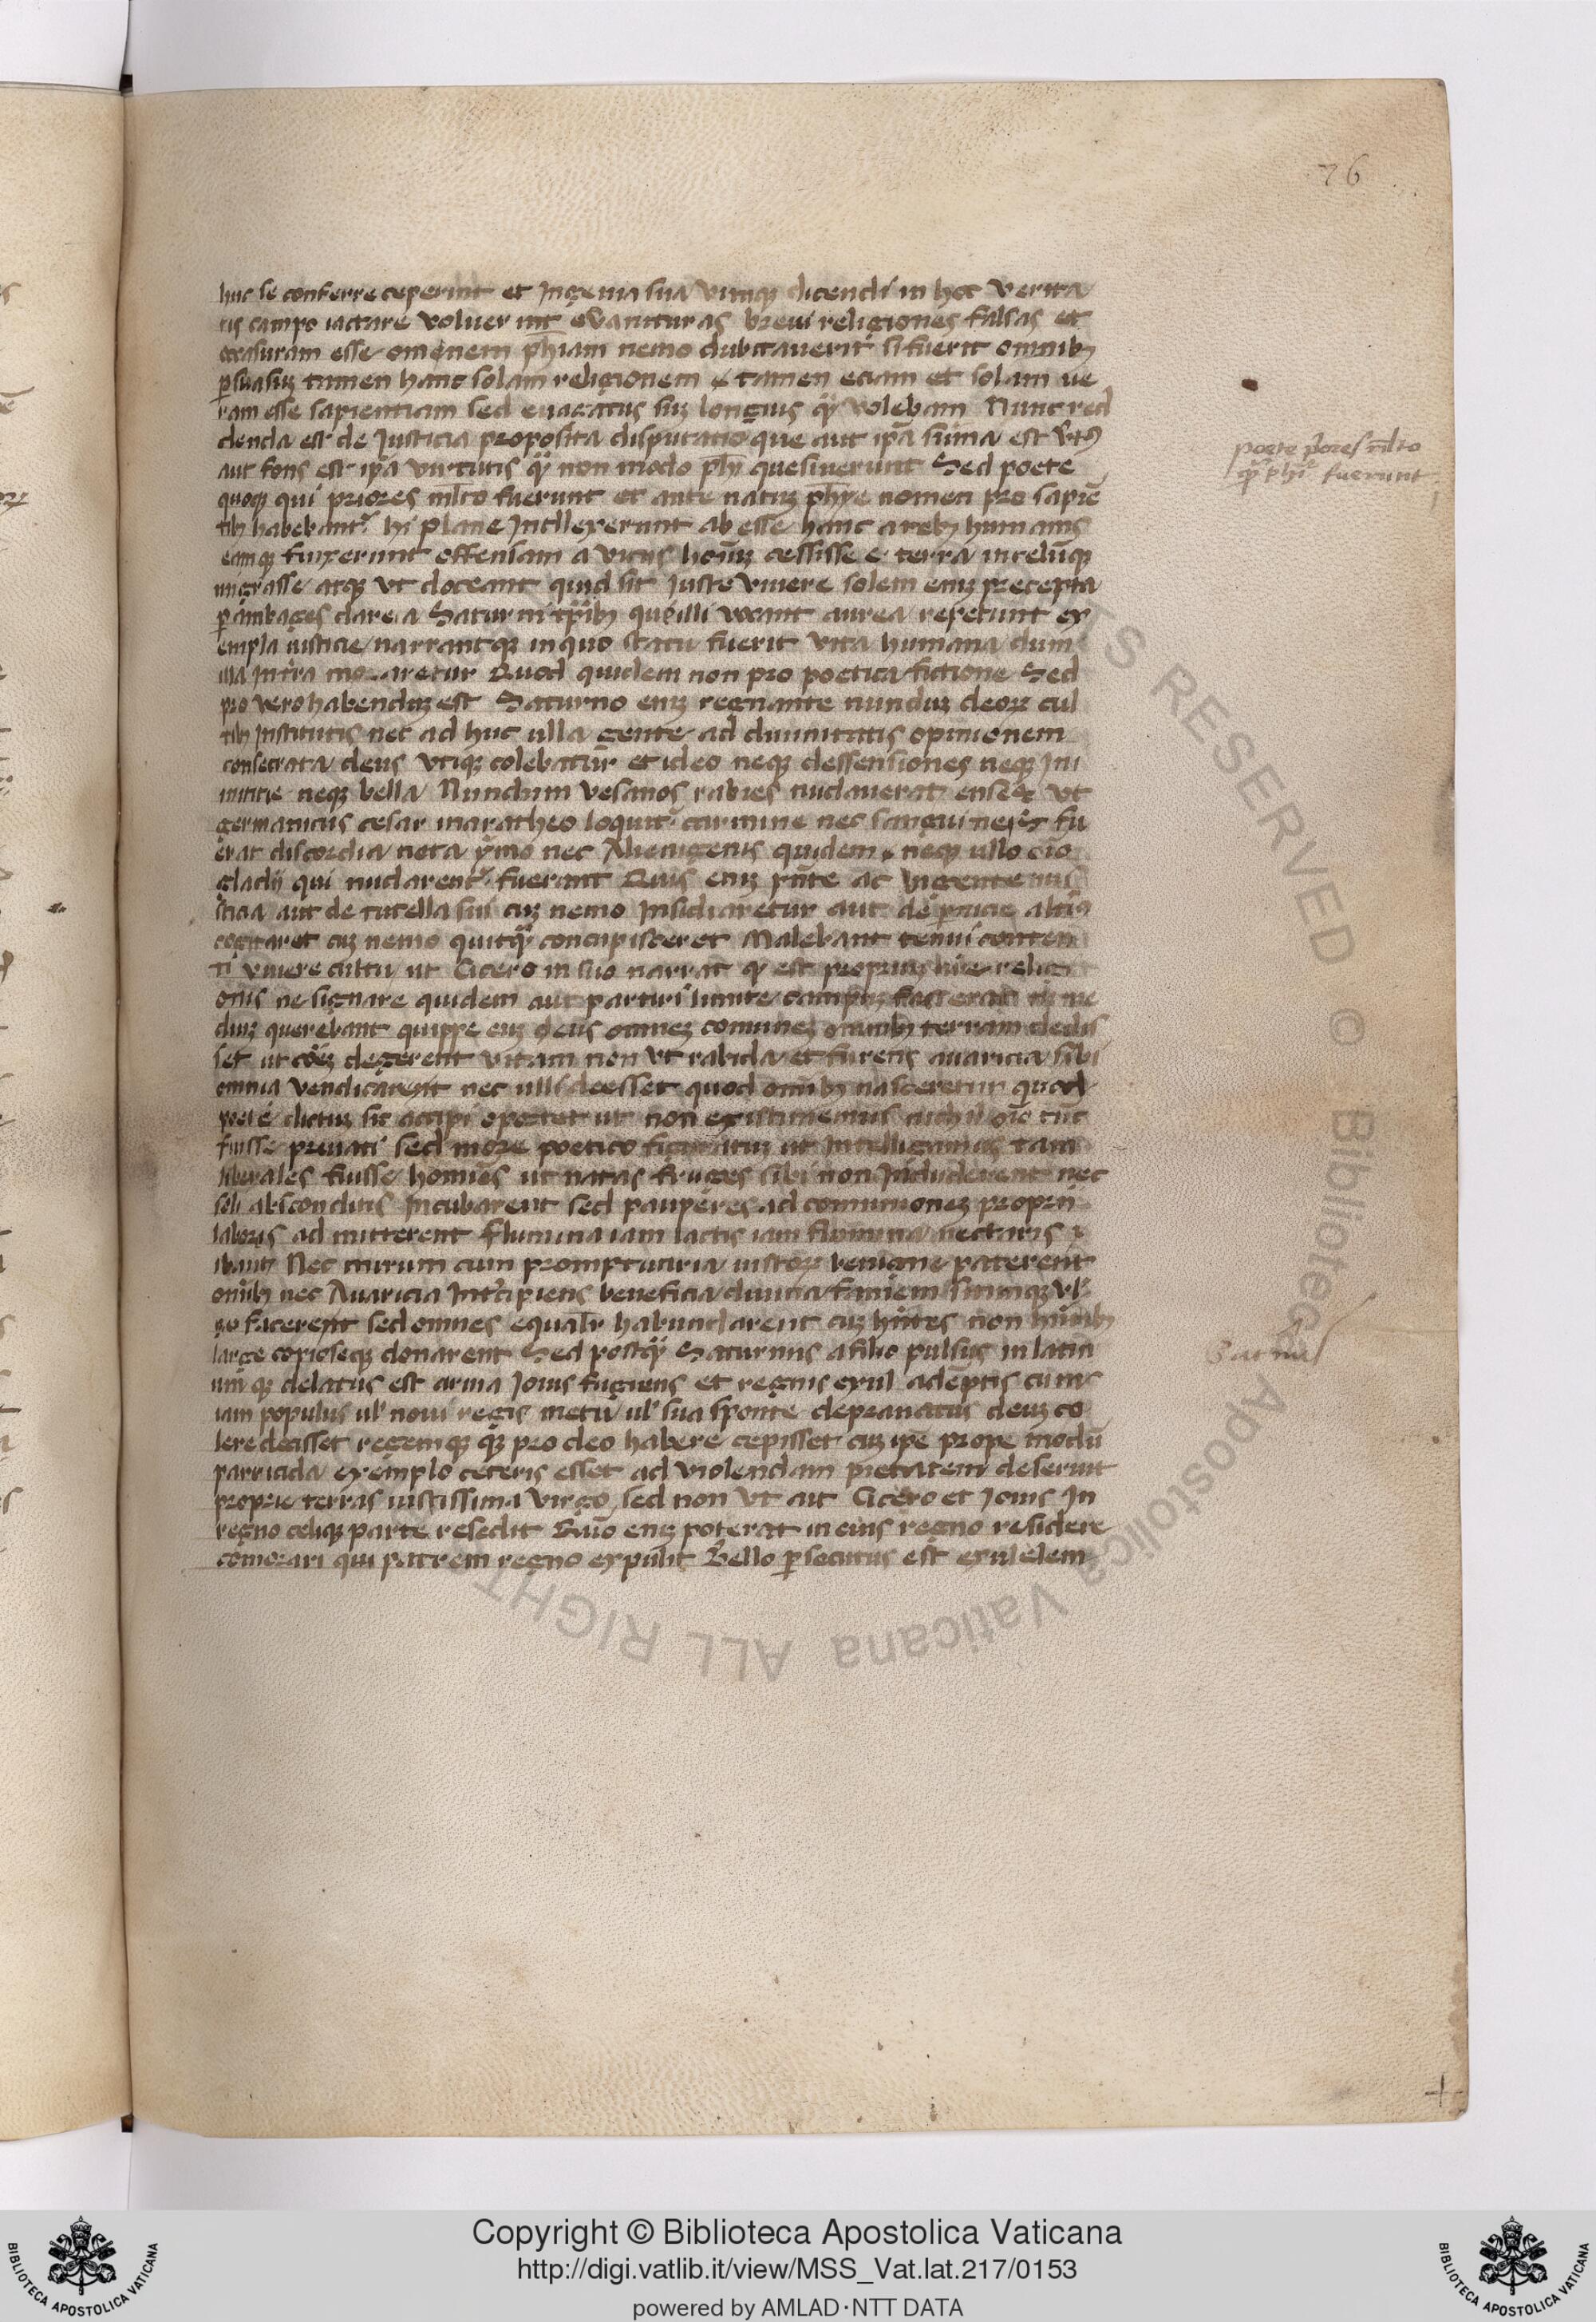 76
huc se conferre ceperint et Ingenia sua vimque dicendi in hoc verita
tis campo iactare voluerint evanituras brevi religiones falsas et
occasuram esse omenem phiam nemo dubitaverit si fuerit omnibz
psuasuz tamen hanc solam religionem tamen eciam et solam ve
ram esse sapientiam sed evagatus suz longius qz volebam Nunc red
denda est de Justicia proposita disputatio que aut ipa suma est vtus
aut fons est ipa virtutis qz non modo phy quesiuerunt Sed poete
quoqz qui priores mlto fuerunt et ante natuz phye nomen pro sapie
tibz habebantr hi plane Intllexerunt ab esse hanc a rebz humanis
eamqz finxerunt offensam a vitiis hoiuz cessisse e terra in celuqz
migrasse atqz vt doceant quid sit Juste vivere solem enuz precepta
pambages dare a Saturni tpibz que illi vocant aurea repetunt ex
empla iusticie narrantqz in quo statu fuerit vita humana dum
illa Intra moraretur Quod quidem non pro poetica fictione Sed
pro vero habenduz est Saturno enuz regnante nunduz deorz cul
tibz Institutis nec ad huc ulla gente ad divinitatis opinionem
consecrata deus vtiqz colebatur et ideo neqz dessensiones neqz Ini
micitie neqz bella Nundum vesanos rabies nudaverat enses vt
germanicus cesar in aratheo loquitr carmine nec sanguineis fu
erat discordia nota ymo nec Alienigenis quidem neqz ullo oio
gladij qui nudarentr fuerant Quis enuz pnte ac vigente ius
sticia aut de tutella sui cuz nemo Insidiaretur aut de pnicie altius
cogitaret cuz nemo quitqz concupisceret Malebant tenui conten
ti vivere cultu ut Cicero in suo narrat qz est propriuz hiie relig
onis ne signare quidem aut partiri limite campuz fas erat in me
diuz querebant quippe enuz deus omnez comunez omnibz terram dedis
set ut coez degerent vitam non vt rabida et furens avaricia sibi
omnia vendicarent nec ulli deesset quod omibz nasceretur quod
poete dictuz sic accipi oportet ut non existimemus nichil oio tuc
fuisse privati sed more poetico figuratuz ut Intelligamus tam
liberales fuisse homies ut natas fruges sibi non Includerent nec
soli absconditis Incubarent sed pauperes ad comunionez proprii
laboris ad mitterent flumina iam lactis iam flumina nectaris
ibant Nec mirum cum promptuaria iustorz benigne paterent
omibz nec Avaricia Intcipiens beneficia divina famem sitimqz vl
go facerent sed omnes equalr habundarent cuz hntes non hntibz
large copioseqz donarent Sed postqz Saturnus a filio pulsus in latiu
umqz delatus est arma Jovis fugiens et regnis exul ademptis cum
iam populus ul novi regis metu ul sua sponte depravatus deuz co
lere desisset regemqz qz pro deo habere cepisset cuz ipe prope modu
parricida exemplo ceteris esset ad violendam pietatem deseruit
proprie terras iustissima virgo sed non vt ait Cicero et Jovis In
regno celiqz parte resedit Quo enuz poterat in eius regno residere
comorari qui patrem regno expulit Bello psecutus est exulelem
poete pores mlto
qz phi fuerunt
ALL RIGHTS RESERVED © Biblioteca Apostolica Vaticana
Copyright © Biblioteca Apostolica Vaticana
http://digi.vatlib.it/view/MSS_Vat.lat.217/0153
powered by AMLAD·NTT DATA
BIBLIOTECA APOSTOLICA VATICANA
BIBLIOTECA APOSTOLICA VATICANA